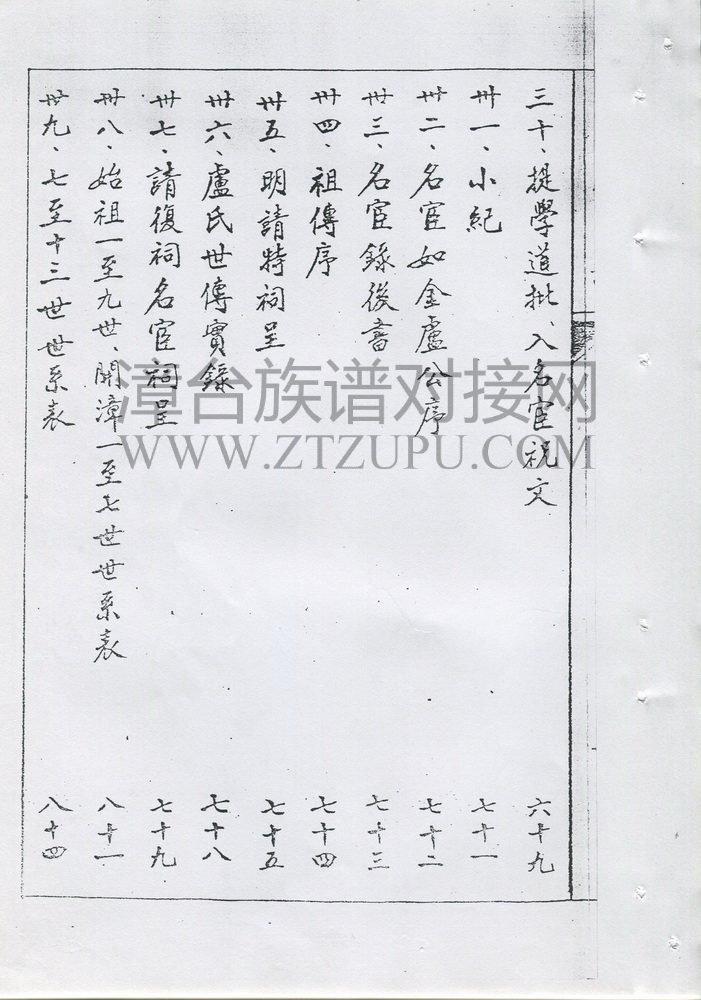 三十、提學道批、入名宦祝文 六十九
卅一、小紀 七十一
卅二、名宦如金盧公序 七十二
卅三、名宦錄後書 七十三
卅四、祖傳序 七十四
卅五、明請特祠呈 七十五
卅六、盧氏世傳實錄 七十八
卅七、請復祠名宦祠呈 七十九
卅八、始祖一至九世、開漳一至七世世系表 八十一
卅九、七至十三世世系表 八十四
漳台族谱对接网
WWW.ZTZUPU.COM